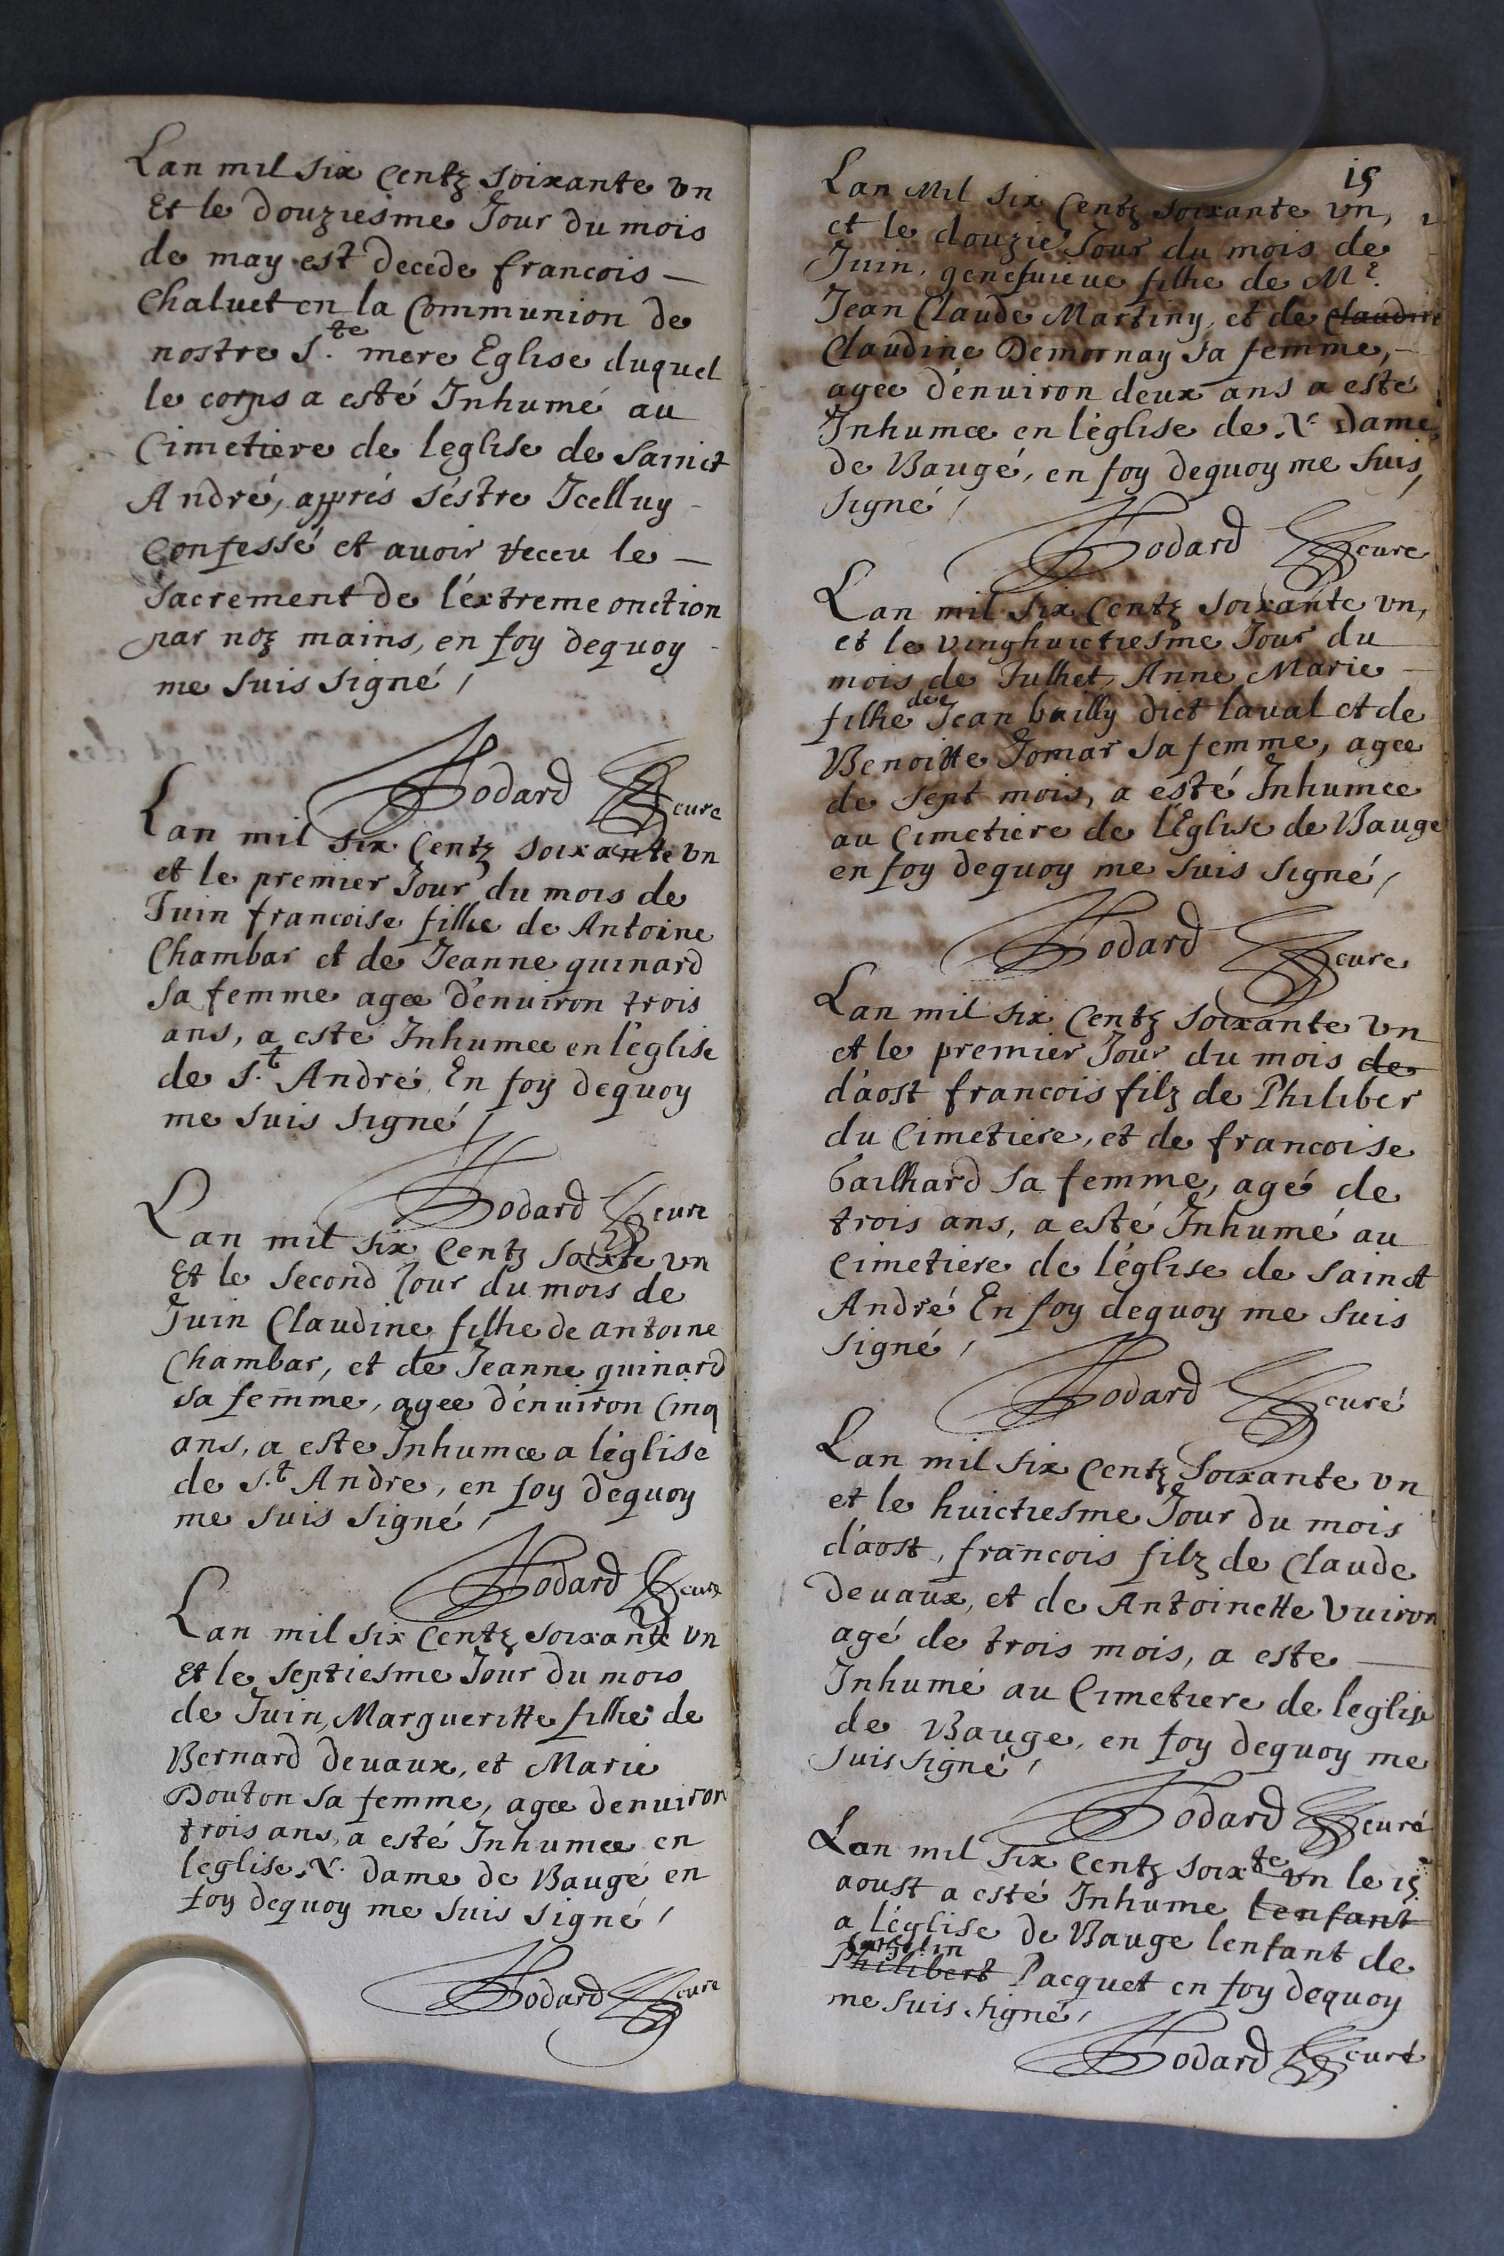 Lan mil six Centz soixante vn
Et le douziesme Jour du mois
de may est decede francois —
Chaluet en la Communion de
nostre S.te mere Eglise duquel
le corps a esté Inhumé au
Cimetiere de leglise de Sainct
André, apprés séstre Icelluy
Confessé et auoir receu le —
Sacrement de léxtreme onction
par noz mains, en foy dequoy
me suis signé /
Hodard cure
Lan mil six Centz soixante vn
et le premier Jour du mois de
Juin francoise filhe de Antoine
Chambar et de Jeanne guinard
sa femme agee dénuiron trois
ans, a esté Inhumee en léglise
de S.t André, En foy dequoy
me suis signé /
Hodard cure
Lan mil six Centz soixte vn
Et le second Jour du mois de
Juin Claudine filhe de antoine
Chambar, et de Jeanne guinard
sa femme, agee dénuiron Cinq
ans, a este Inhumee a léglise
de S.t Andre, en foy dequoy
me suis signé /
Hodard cure
Lan mil six Centz soixante vn
Et le septiesme Jour du mois
de Juin, Margueritte filhe de
Bernard deuaux, et Marie
Douton sa femme, agee denuiron
trois ans, a esté Inhumee en
leglise N. dame de Baugé en
foy dequoy me suis signé /
Hodard cure
15
Lan Mil six Centz soixante vn,
et le douzie Jour du mois de
Juin, genefuieue filhe de Mr.
Jean Claude Martiny, et de Claudine
Claudine Demornay sa femme, —
agee dénuiron deux ans a esté
Inhumee en léglise de N. Dame
de Baugé, en foy dequoy me suis,
signé /
Hodard cure
Lan mil six Centz soixante vn,
et le vinghuictiesme Jour du
mois de Julhet, Anne Marie —
filhe de Jean bailly dict laval et de
Benoitte Jomar sa femme, agee
de sept mois, a esté Inhumee
au Cimetiere de l'Eglise de Bauge
en foy dequoy me suis signé /
Hodard cure
Lan mil six Centz soixante vn
et le premier Jour du mois de
d'aost francois filz de Philiber
du Cimetiere, et de francoise
Gailhard sa femme, agé de
trois ans, a esté Inhumé au
Cimetiere de léglise de Sainct
André En foy dequoy me suis
signé /
Hodard curé
Lan mil six Centz soixante vn
et le huictiesme Jour du mois
d'aost, francois filz de Claude
Deuaux, et de Antoinette Vuiron
agé de trois mois, a este —
Inhumé au Cimetiere de leglise
de Bauge, en foy dequoy me
suis signé /
Hodard curé
Lan mil six Centz soixte vn le 15
aoust a esté Inhume lenfant
a léglise de Bauge lenfant de
Philibert Pacquet en foy dequoy
me suis signé /
Hodard curé